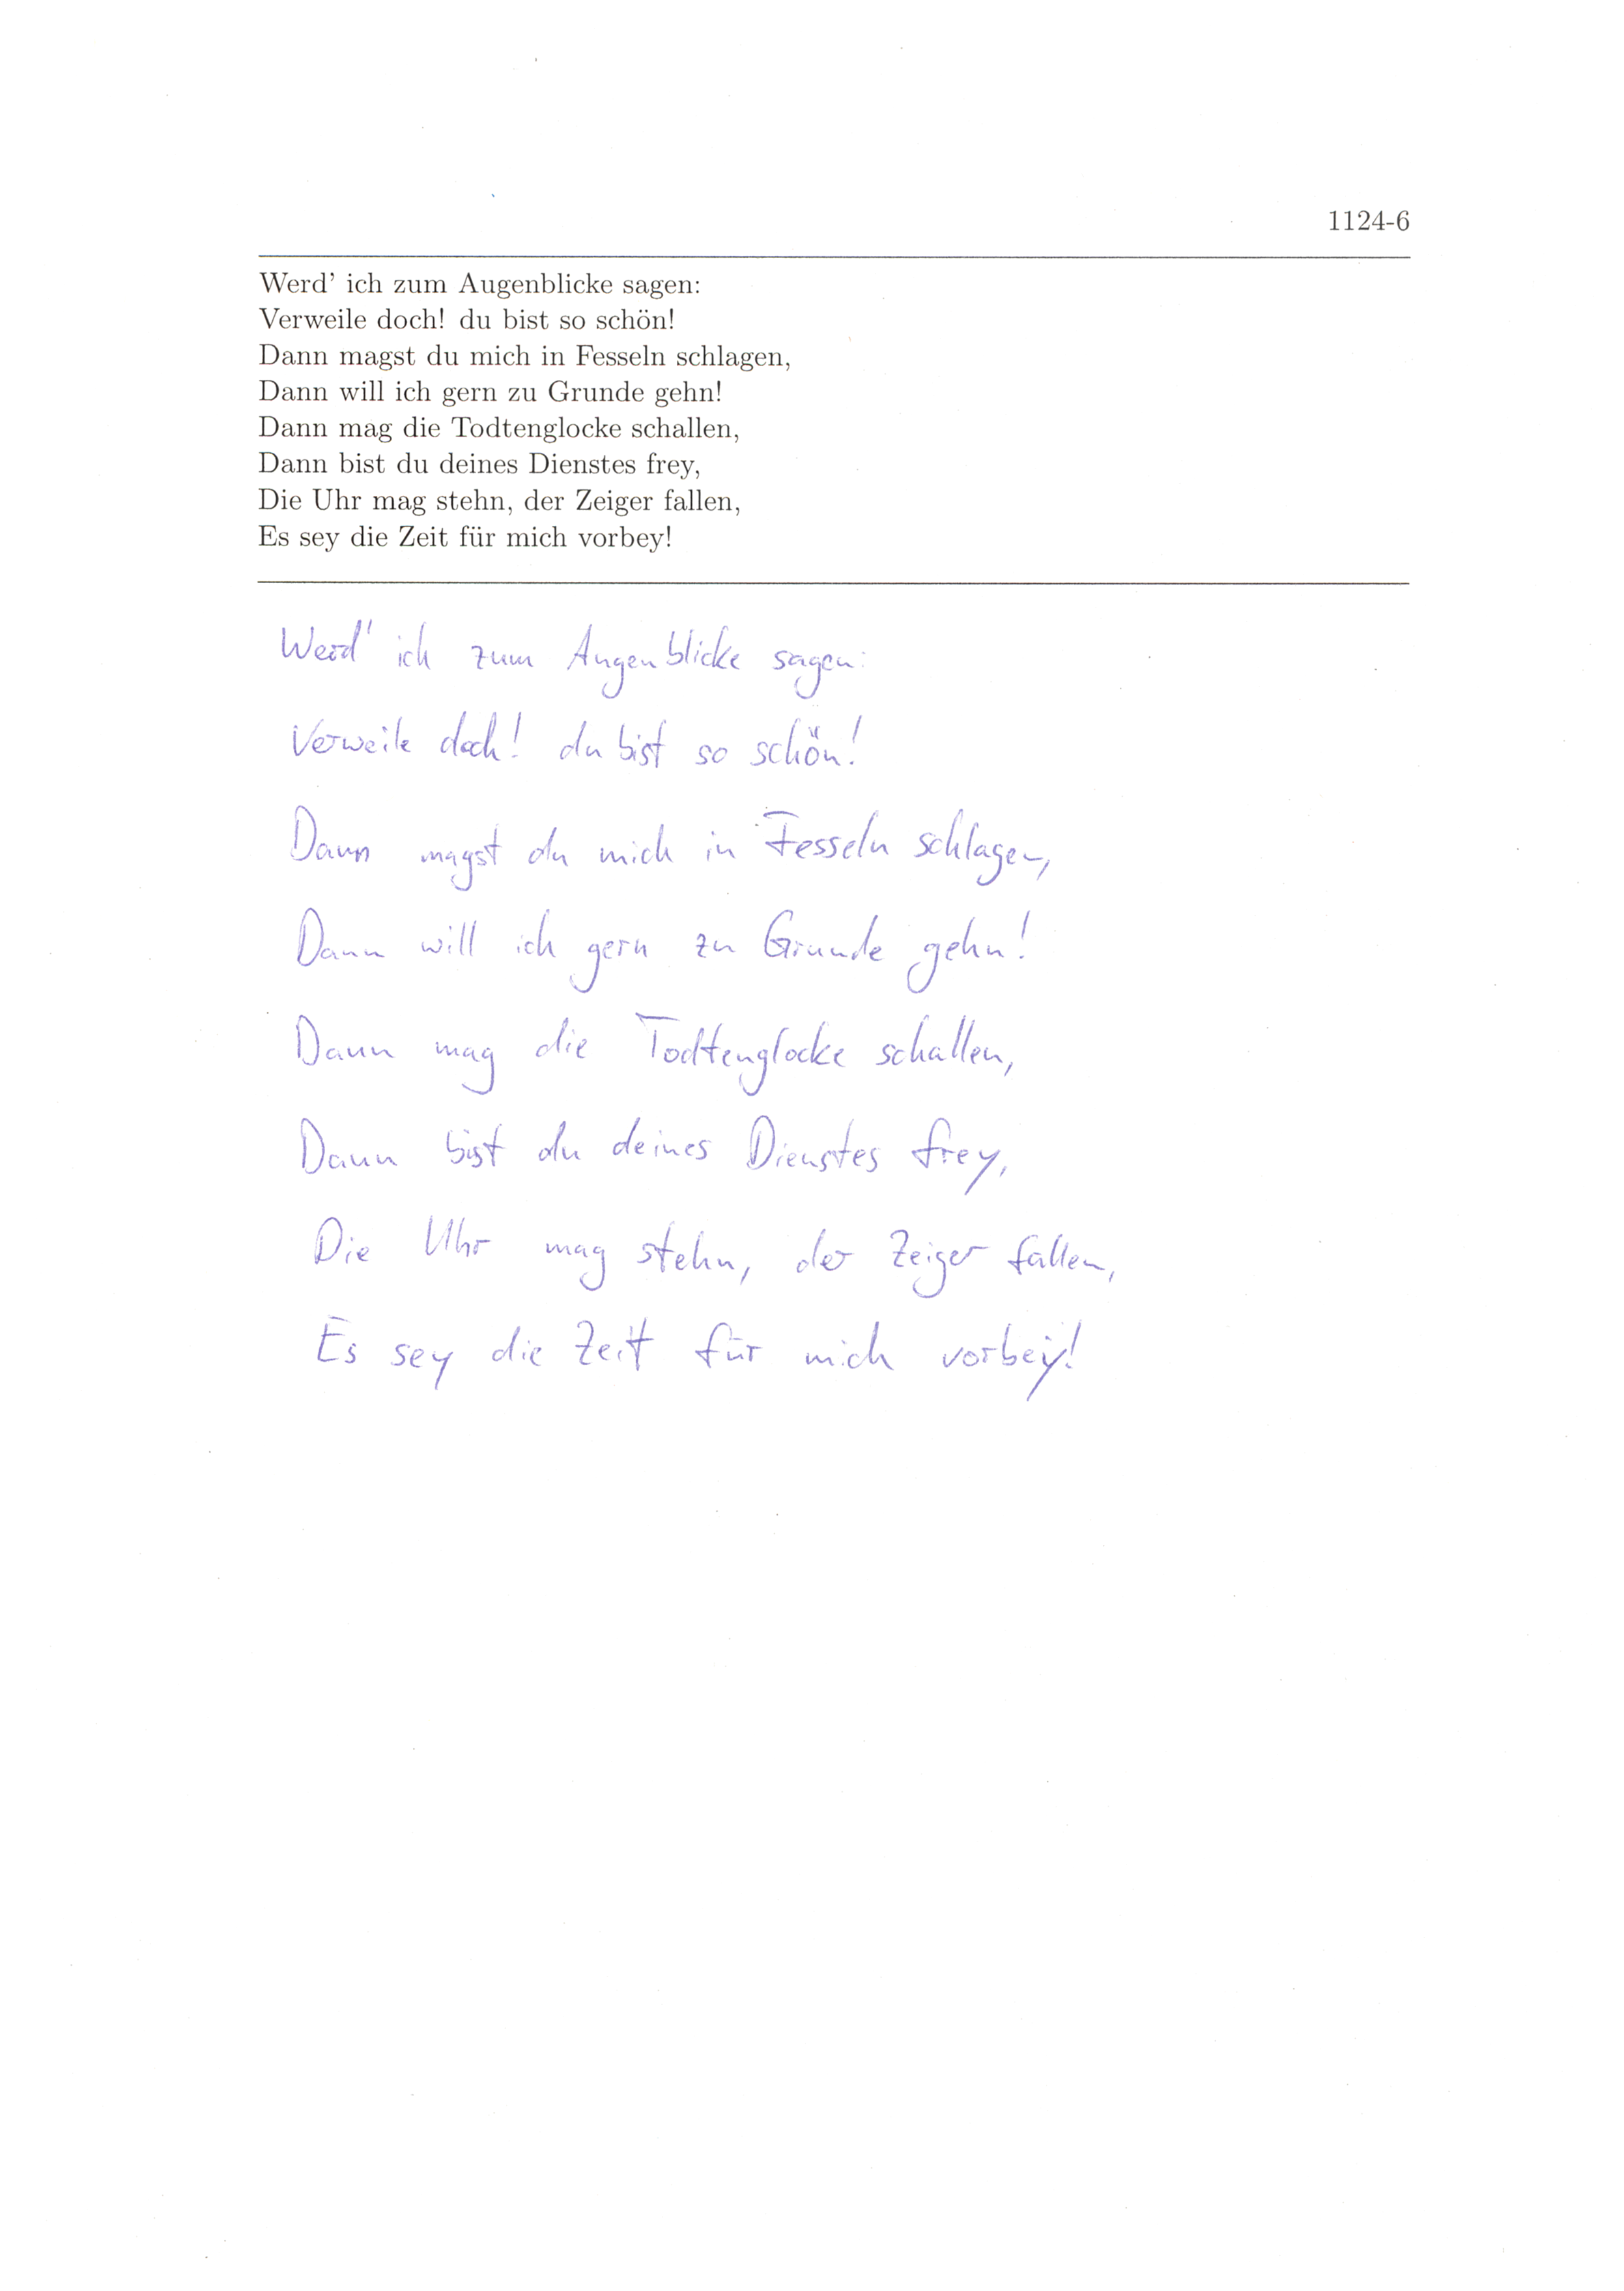 1124-6
Werd' ich zum Augenblicke sagen:
Verweile doch! du bist so schön!
Dann magst du mich in Fesseln schlagen,
Dann will ich gern zu Grunde gehn!
Dann mag die Todtenglocke schallen,
Dann bist du deines Dienstes frey,
Die Uhr mag stehn, der Zeiger fallen,
Es sey die Zeit für mich vorbey!
Werd' ich zum Augenblicke sagen:
Verweile doch! du bist so schön!
Dann magst du mich in Fesseln schlagen,
Dann will ich gern zu Grunde gehn!
Dann mag die Todtenglocke schallen,
Dann bist du deines Dienstes frey,
Die Uhr mag stehn, der Zeiger fallen,
Es sey die Zeit für mich vorbey!